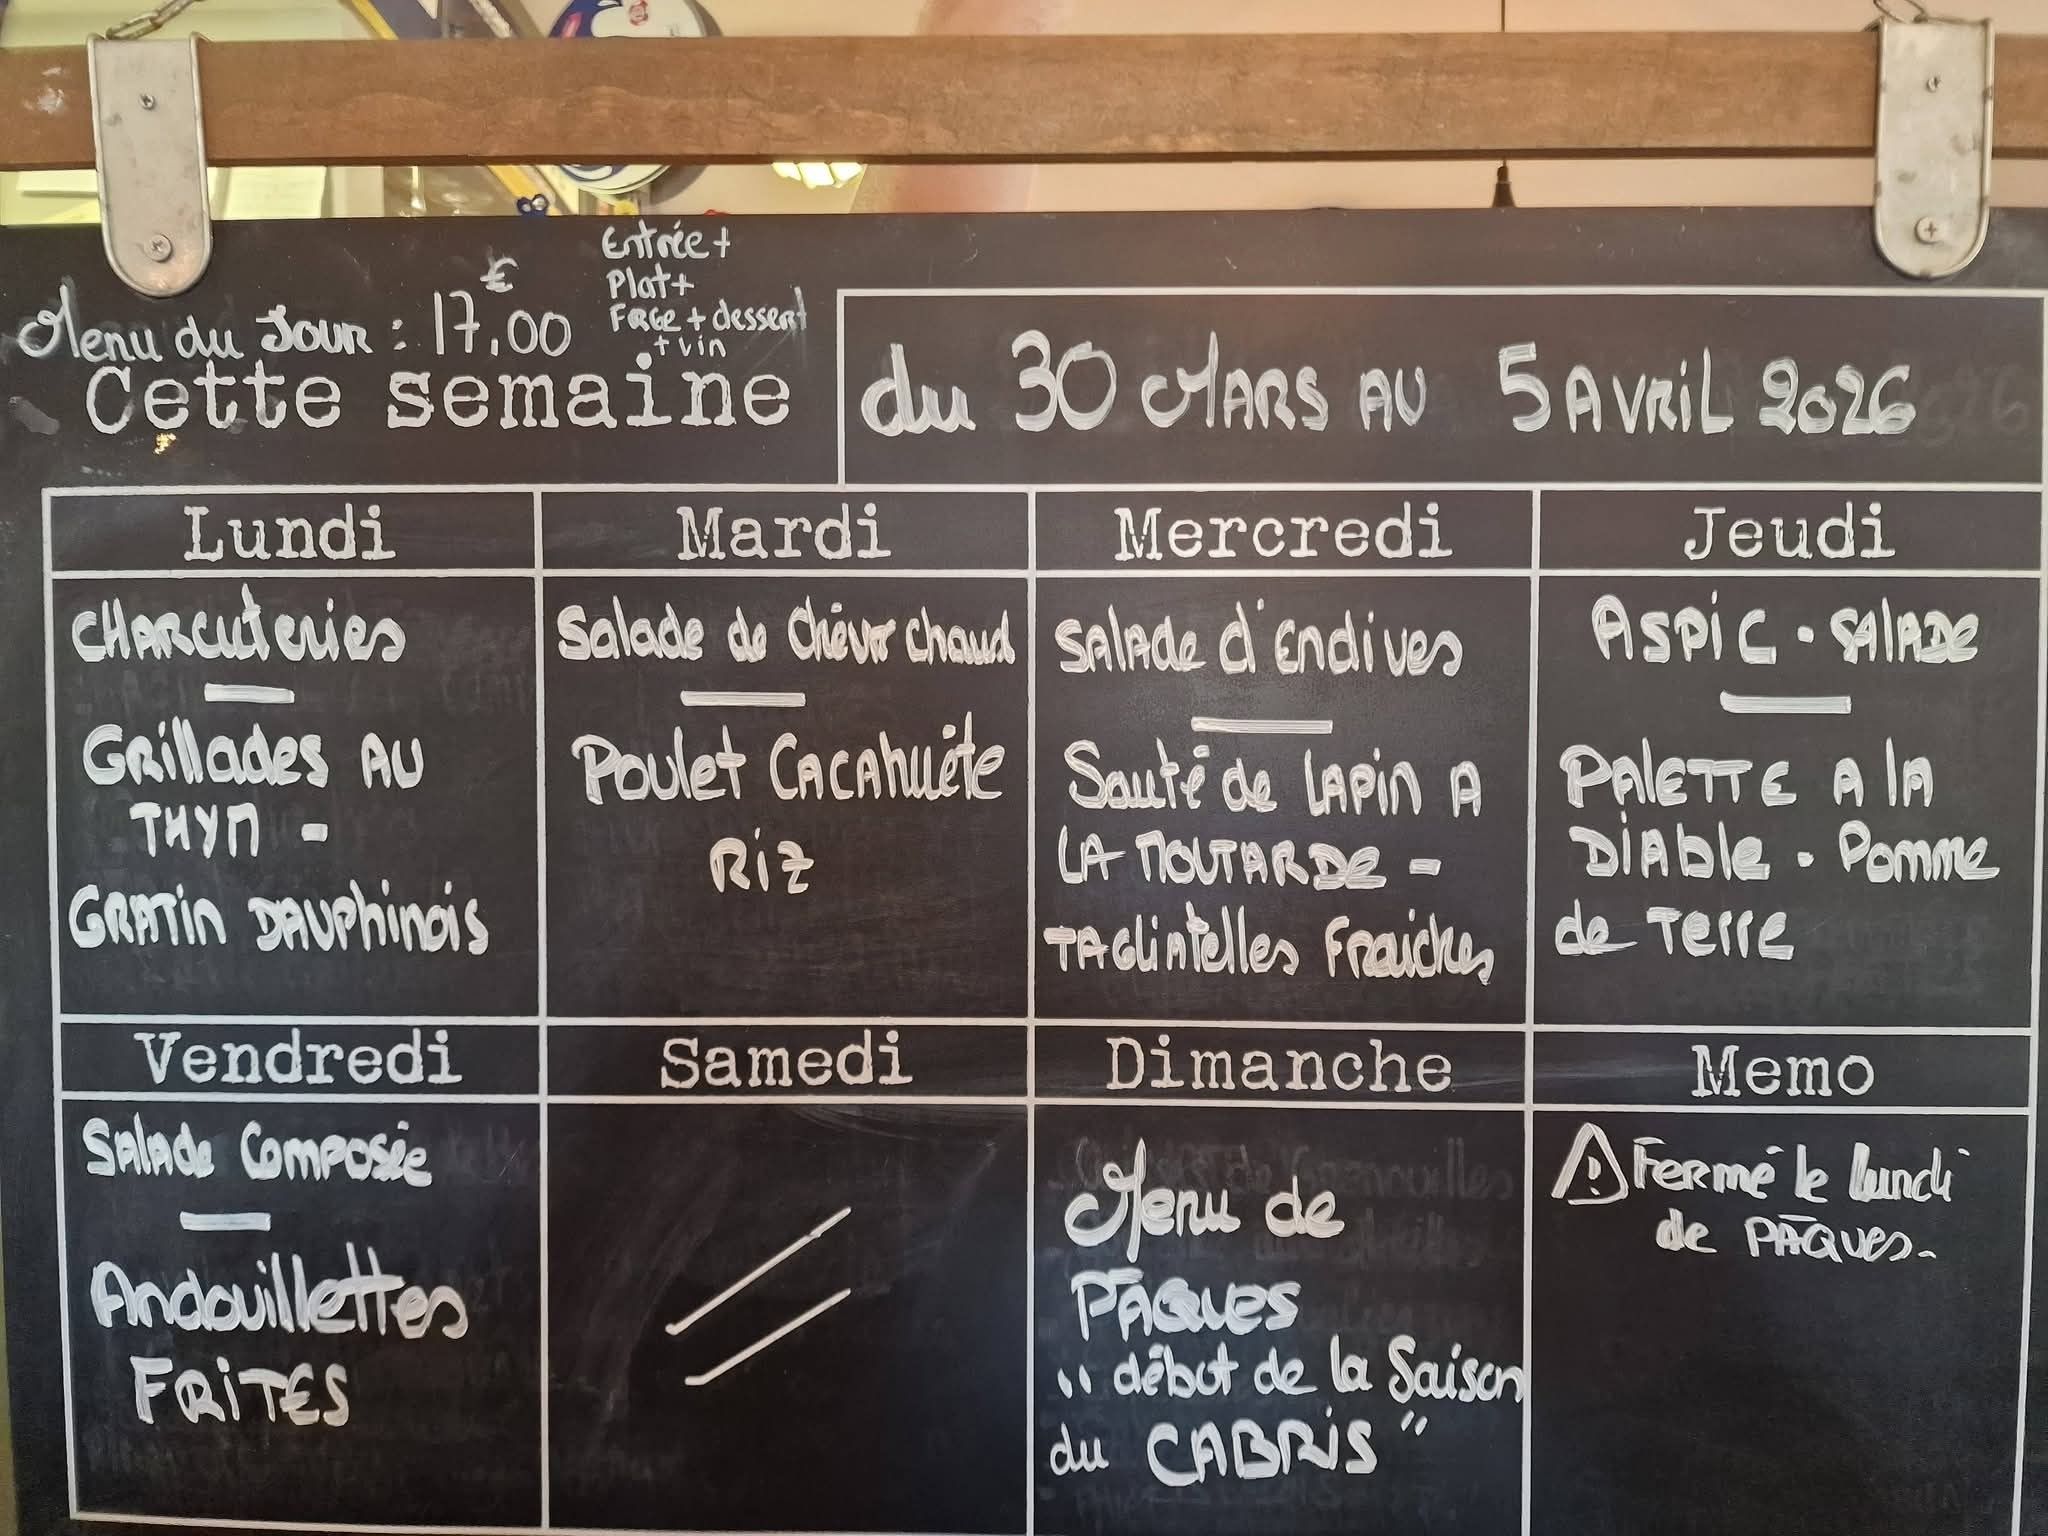 Menu du Jour : 17,00 €
Entrée +
Plat +
Froge + dessert
+ vin
Cette semaine
du 30 MARS AU 5 AVRIL 2026
Lundi
CHARCUTERIES
GRILLADES AU
THYM -
GRATIN DAUPHINOIS
Mardi
Salade de Chèvr chaud
Poulet CACAHUÈTE
RIZ
Mercredi
SALADE d'Endives
Sauté de LAPIN A
LA MOUTARDE -
TAGLIATELLES FRAICHES
Jeudi
ASPIC - SALADE
PALETTE A LA
DIABLE - Pomme
de Terre
Vendredi
SALADE COMPOSÉE
Andouillettes
FRITES
Samedi
Dimanche
Menu de
PÂQUES
" début de la Saison
du CABRIS "
Memo
⚠ Fermé le lundi
de PÂQUES.